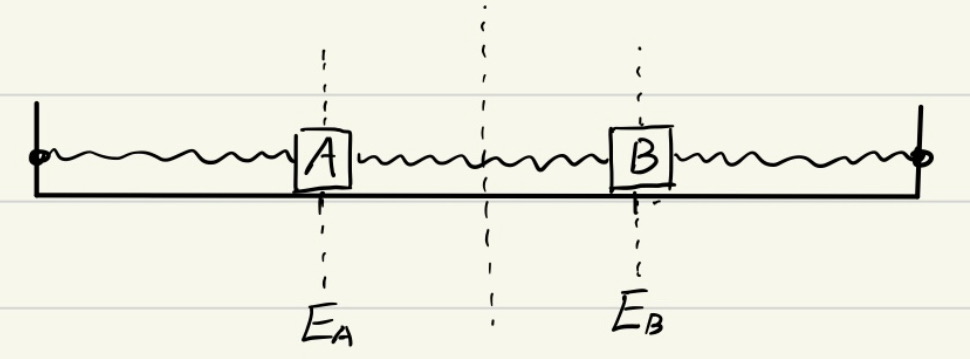 A B
E_A E_B